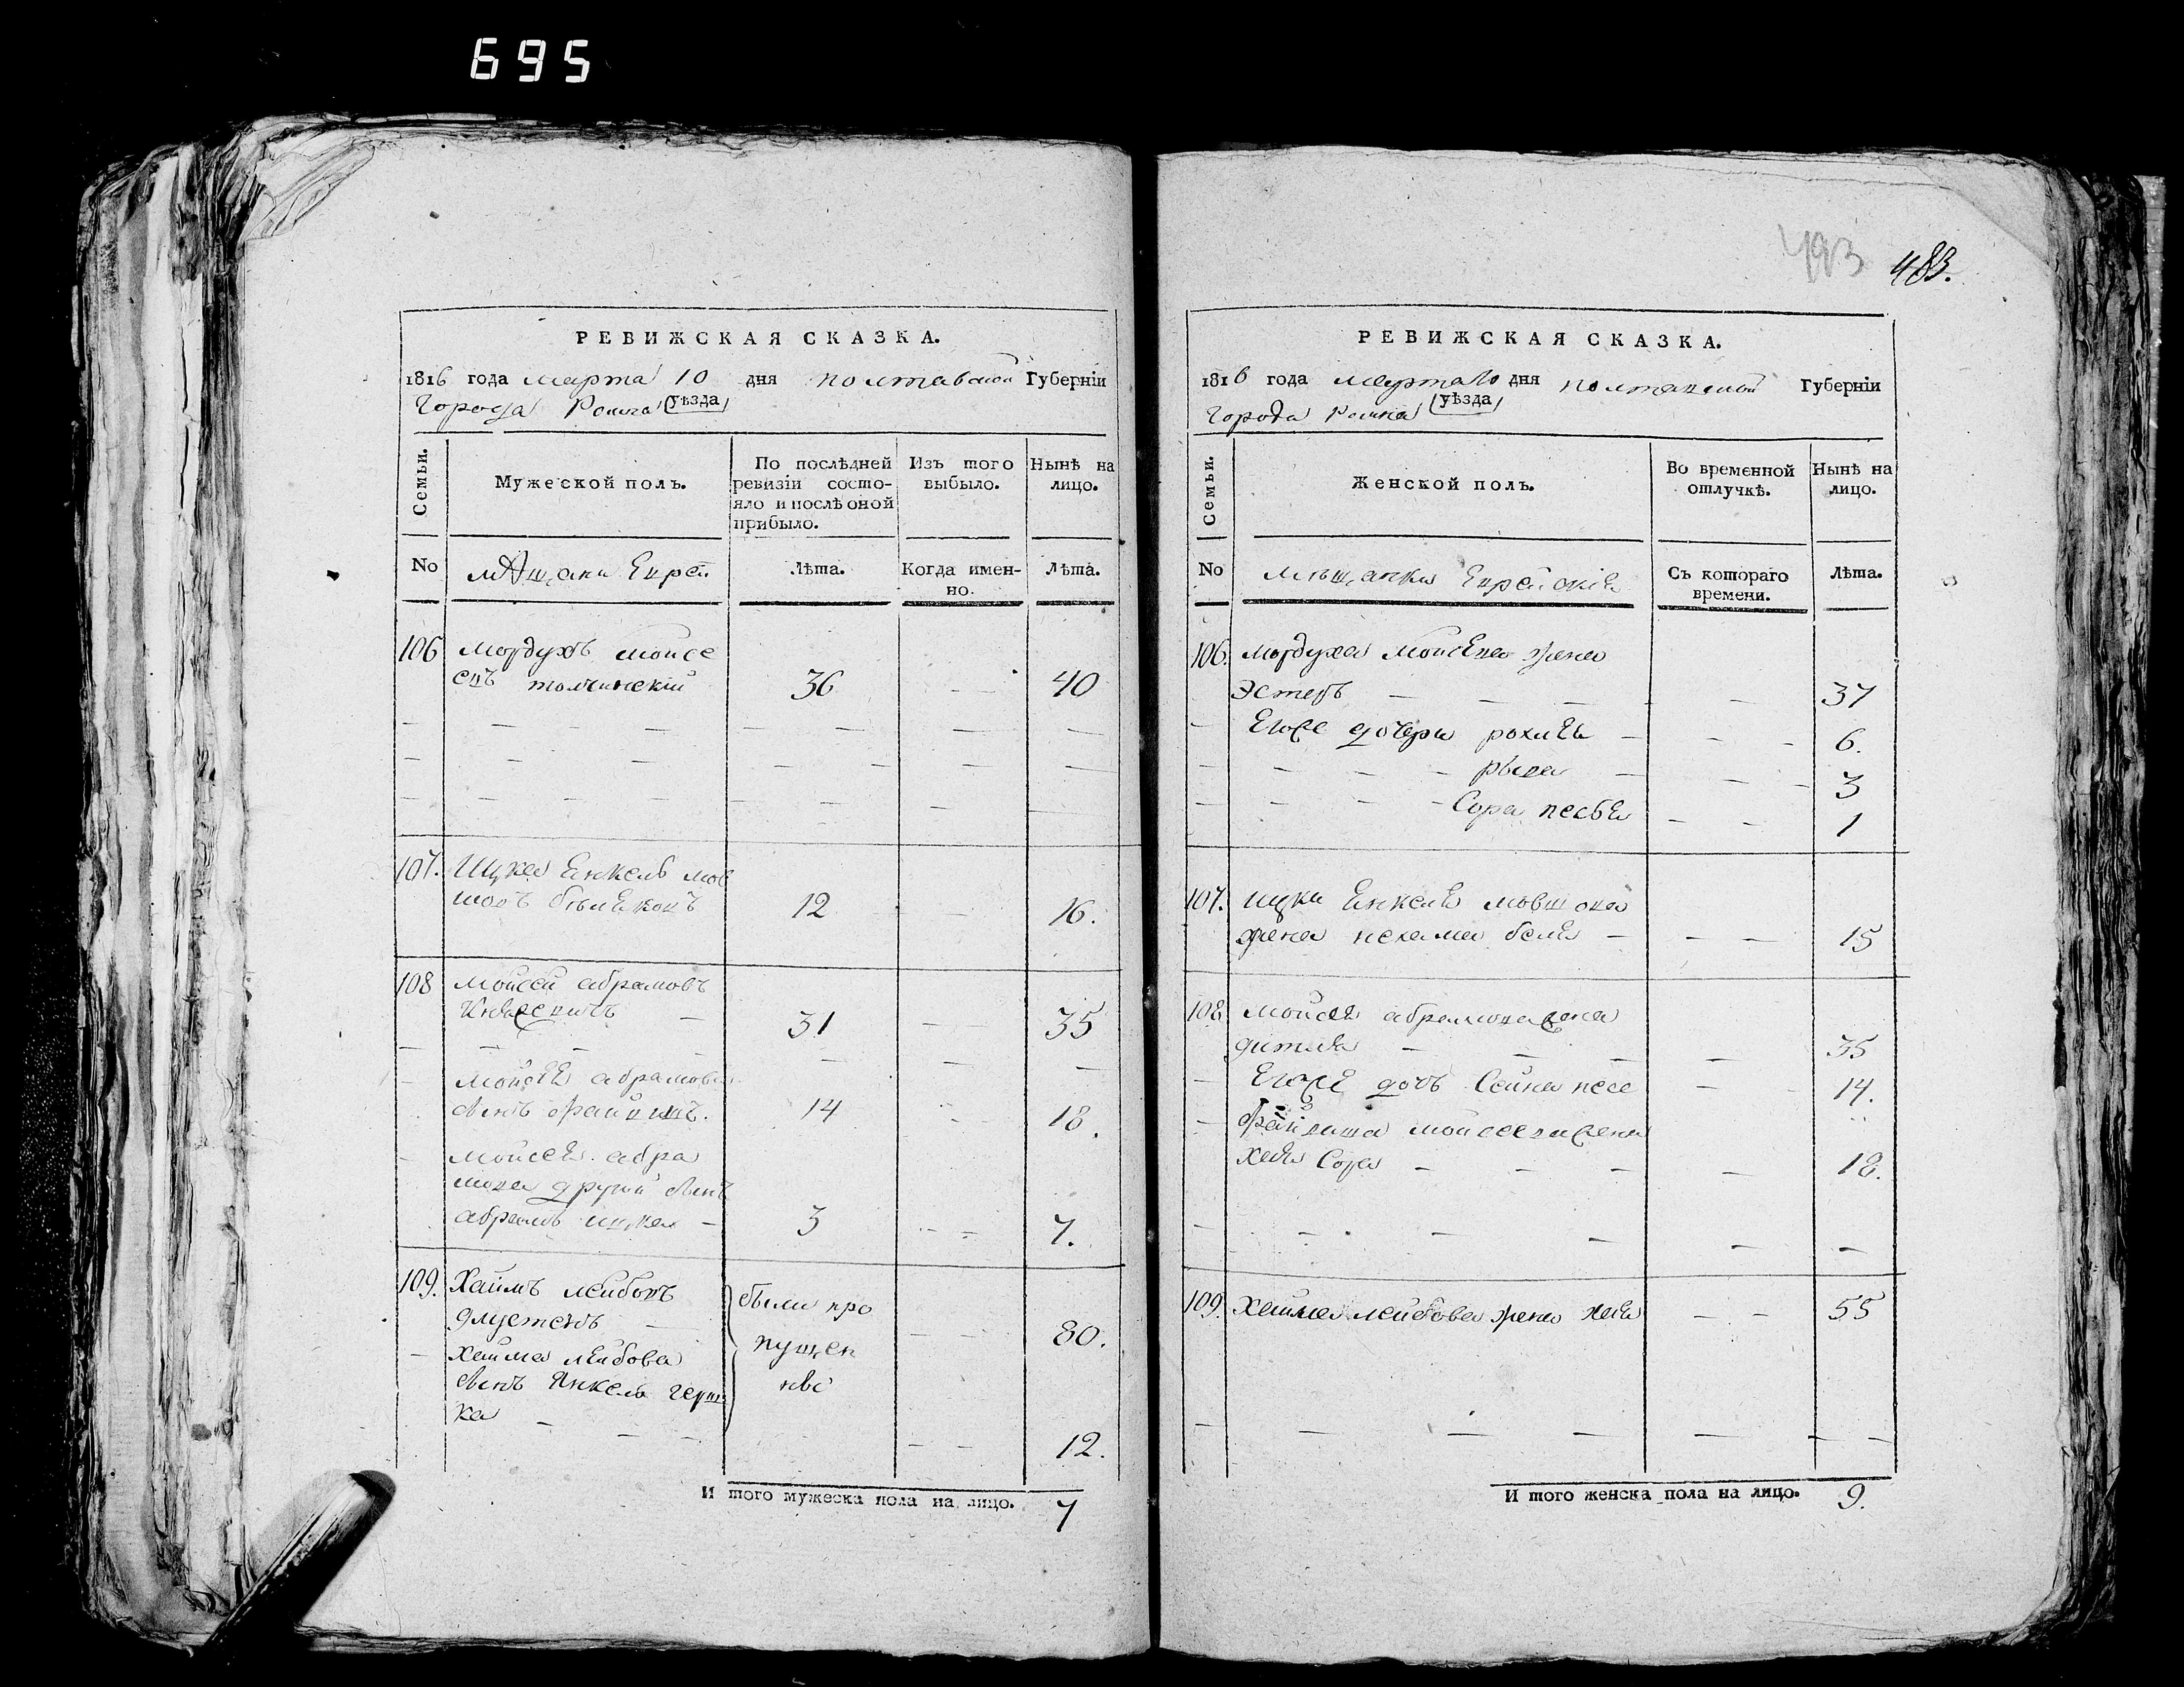 695
РЕВИЖСКАЯ СКАЗКА.
1816 года марта 10 дня полтавской Губерніи
Города Ромна уѣзда
Семьи.
Мужеской полъ.
По послѣдней ревизіи состо-
яло и послѣ оной
прибыло.
Изъ того
выбыло.
Нынѣ на
лицо.
No
мѣщани Евреи
Лѣта.
Когда имен-
но.
Лѣта.
106 мордухъ моисе
евъ толчинскій 36 40
107. Ицка Енкель мов
шовъ 12 16.
108 мойсей абрамовъ
31 35
мойсея абрамова
сынъ файвишъ. 14 18.
мойсея абра
мова другой сынъ
абрамъ ицка 3 7.
109. Хаимъ лейбовъ
были про
80.
пущен
хаима лейбова
ны
сынъ Янкель герш
ка
12.
И того мужеска пола на лицо. 7
493 483.
РЕВИЖСКАЯ СКАЗКА.
1816 года марта 10 дня полтавской Губерніи
Города Ромна уѣзда
Семьи.
Женской полъ.
Во временной
отлучкѣ.
Нынѣ на
лицо.
No
мѣщанки Еврейскіе
Съ котораго
времени.
Лѣта.
106. мордуха мойсева жена
Эстеръ 37
Егоже дочери рохля 6.
рыва 3
Сора песья 1
107. ицки Енкеля мовшова
жена нехама беля 15
108 мойсея абрамова жена
35
Егоже дочь Сейна песе 14.
файвиша мойсеева жена
хая Сора 18.
109. хаима лейбова жена хая 55
И того женска пола на лицо. 9.